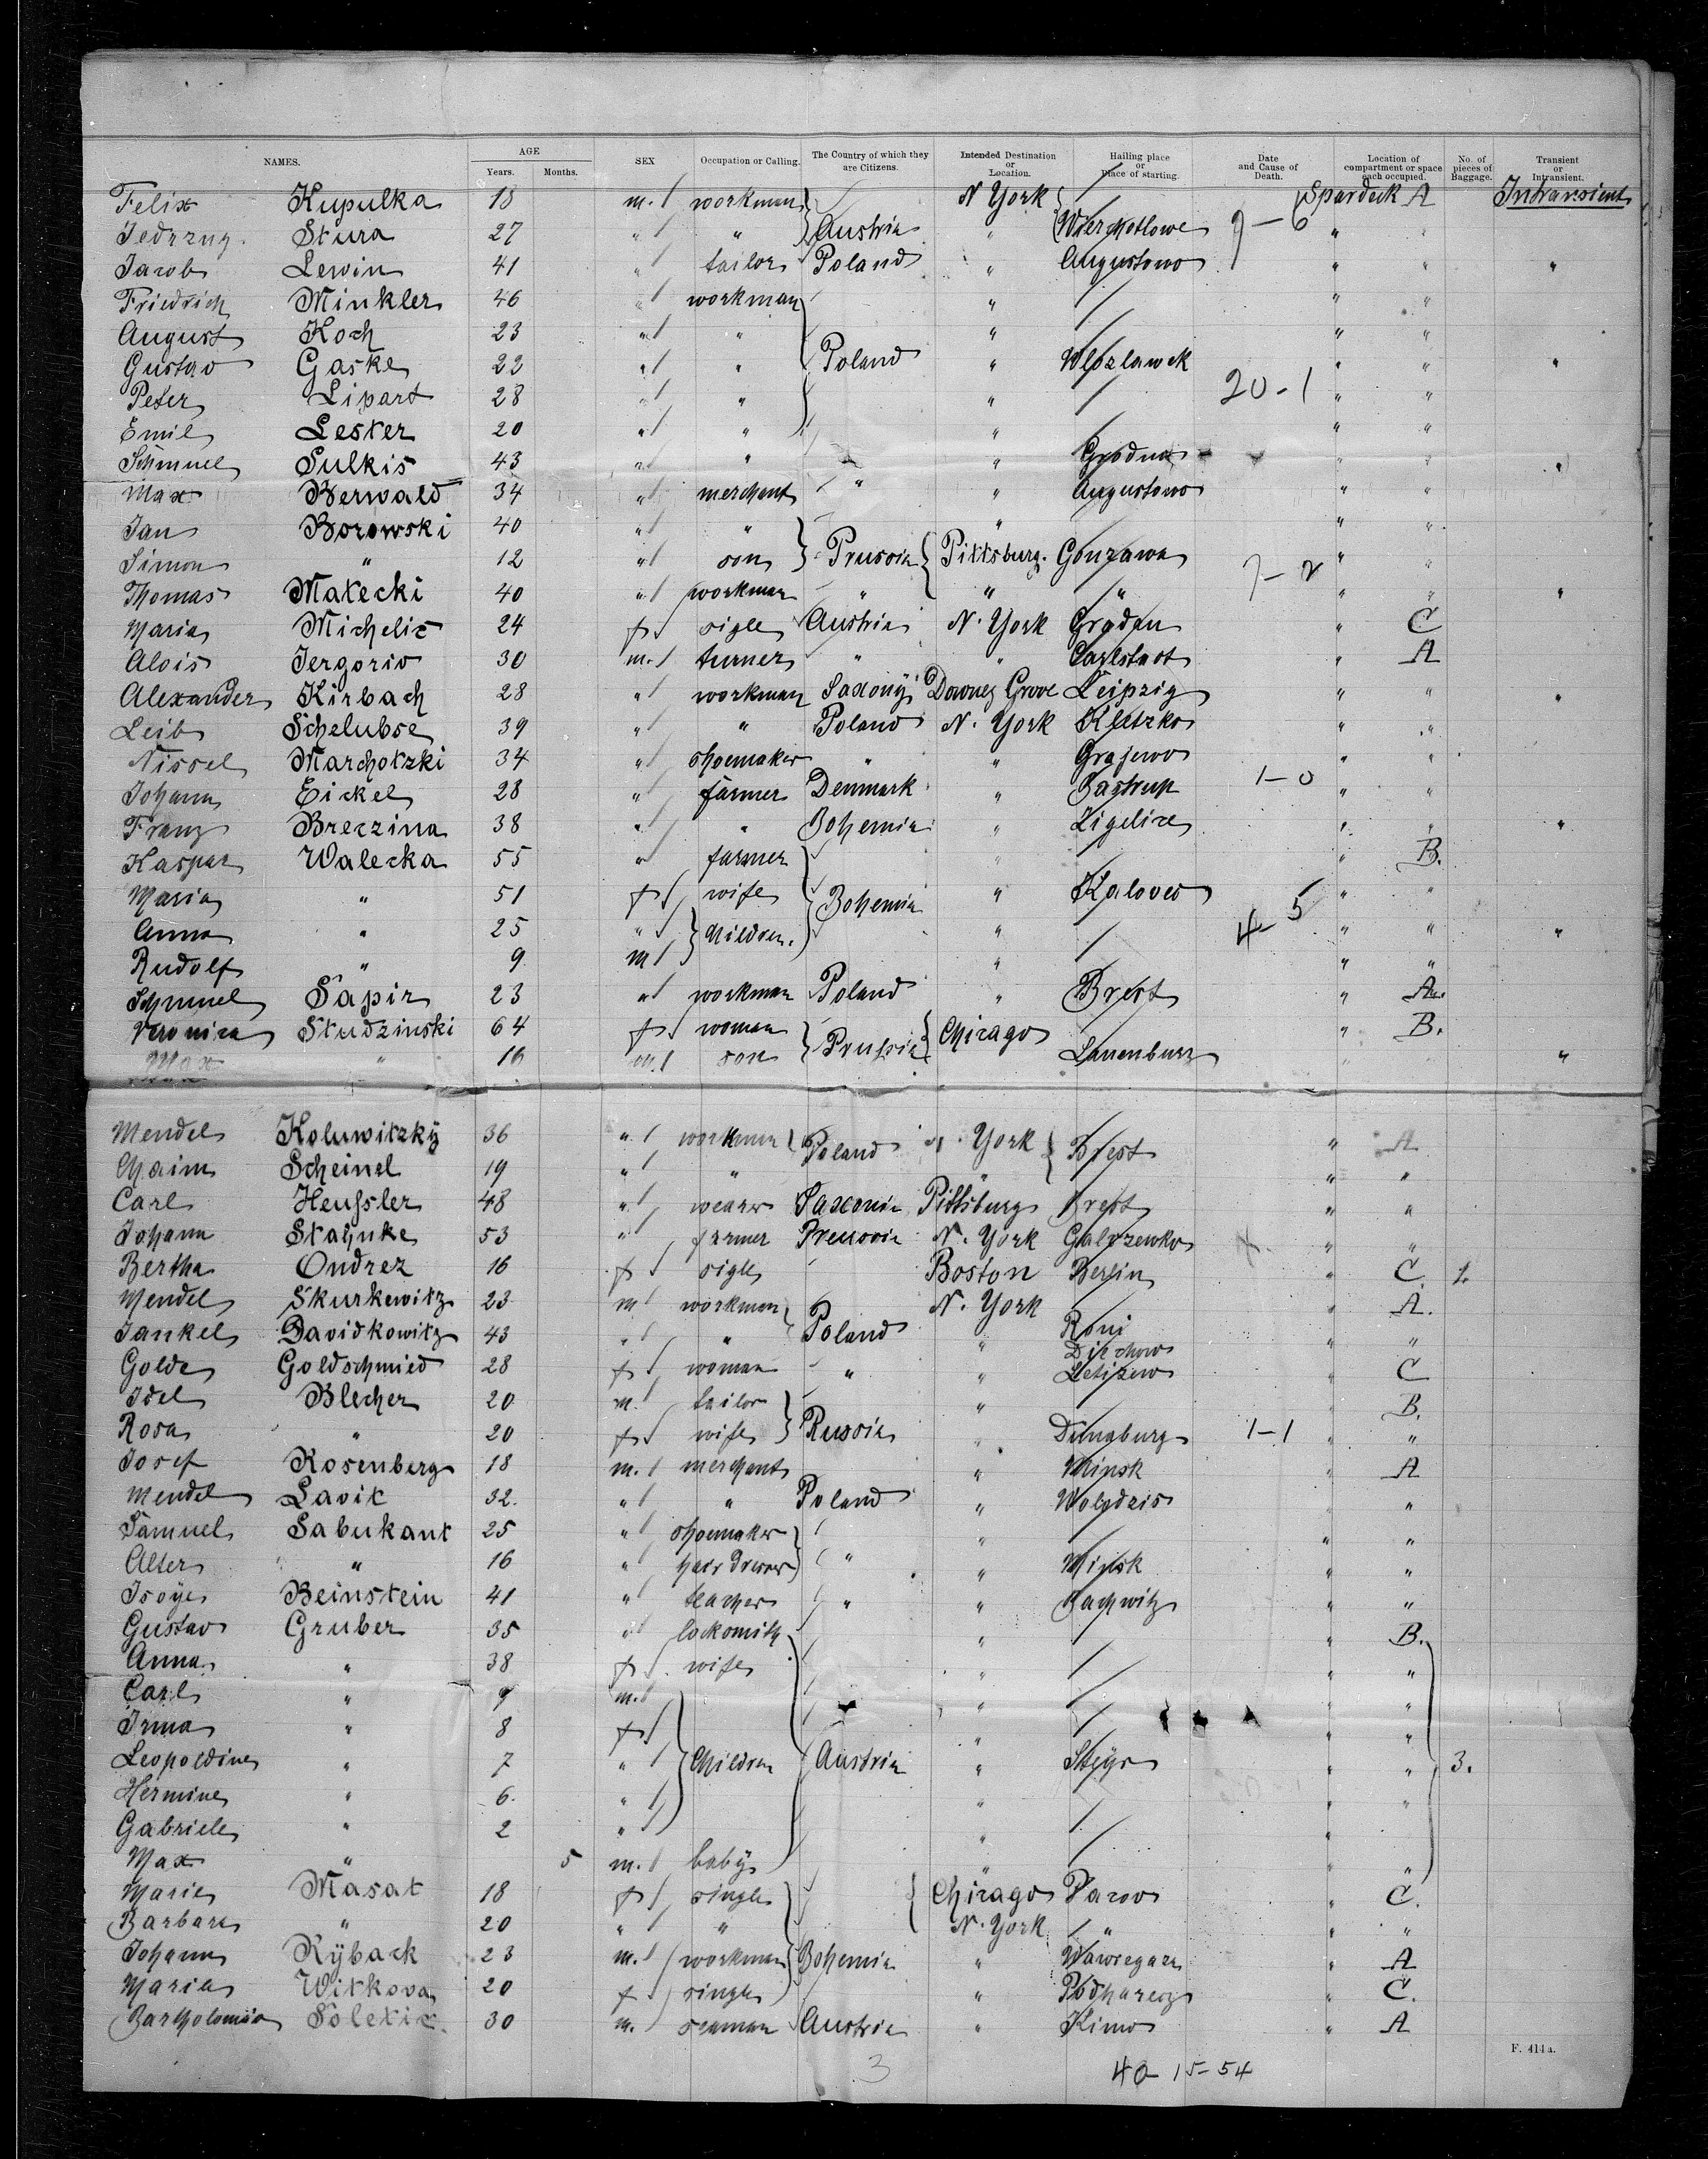 NAMES. AGE Years. Months. SEX Occupation or Calling. The Country of which they are Citizens. Intended Destination or Location. Hailing place or Place of starting. Date and Cause of Death. Location of compartment or space each occupied. No. of pieces of Baggage. Transient or Intransient.
Felix Kupulka 18 m. workman N York Spardeck A Intransient
Stura 27 " " Austria " 9-6 " "
Jacob Lewin 41 " tailor Poland " Augustowo " " "
Friedrich Minkler 46 " workman " " "
August Koch 23 " " " " "
Gustav Gaske 22 " " Poland " Wlozlawek " " "
Peter Lipart 28 " " " 20-1 " "
Emil Lester 20 " " " " "
Schmuel Sulkis 43 " " " Grodno " " "
Max Berwald 34 " merchant " " Augustowo " "
Jan Borowski 40 " " " " "
Simon " 12 " son Prussia Pittsburg. Gonzawa " "
Thomas Malecki 40 " workman " " " 7-2 " " "
Maria Michelic 24 f sigle Austria N. York " C
Alois Jergoric 30 m. turner " " Carlstadt " A
Alexander Kirbach 28 " workman Saxony Downes Grove Leipzig " " "
Leib Schelubse 39 " " Poland N. York Kletzko " "
Nissel Marchotzki 34 " shoemaker " " Grajewo " "
Johann Eickel 28 " farmer Denmark " Gastrup 1-0 " "
Franz Brezzina 38 " " Bohemia " " " "
Kaspar Walecka 55 " farmer " " B.
Maria " 51 f wife Bohemia " Kalovec " "
Anna " 25 " Children. " 4-5 " " "
Rudolf " 9 m " " "
Schmuel Sapir 23 " workman Poland " Brest " A.
Veronica Studzinski 64 f woman Prussia Chicago " B.
Max " 16 m. son Lauenburg " " "
Mendel Koluwitzky 36 " workman Poland N. York Brest " A
Chaim Scheinel 19 " " " " "
Carl Heussler 48 " weaver Saxonia Pittsburg Brest " "
Johann Stahnke 53 " farmer Prussia N. York " "
Bertha Ondrez 16 f sigle Boston Berlin " C. 1.
Mendel Skurkewitz 23 m workman N. York " A.
Jankel Davidkowitz 43 " " Poland " Roni " "
Golde Goldschmied 28 f woman " " " C
Idel Blecher 20 m. tailor " " B.
Rosa " 20 f wife Russia " Dünaburg 1-1 " "
Josef Rosenberg 18 m. merchant " Minsk " A
Mendel Lavik 32. " " Poland " " "
Samuel Sabukant 25 " shoemaker " " "
Alter " 16 " hair dresser " " Minsk " "
Beinstein 41 " teacher " " " "
Gustav Gruber 35 " locksmith " " B.
Anna " 38 f wife " " "
Carl " 9 m. " " "
Irma " 8 f " " "
Leopoldine " 7 " Children Austria " Steyr " " 3.
Hermine " 6. " " " "
Gabriele " 2 " " "
Max " 5 m. baby " " "
Marie Masat 18 f single Chicago " C.
Barbara " 20 " " N. York " " "
Johann Rÿback 23 m. workman Bohemia " " A
Maria Witkova 20 f single " " C.
Soletic 30 m. seaman Austria " " A
F. 414a.
3 40-15-54